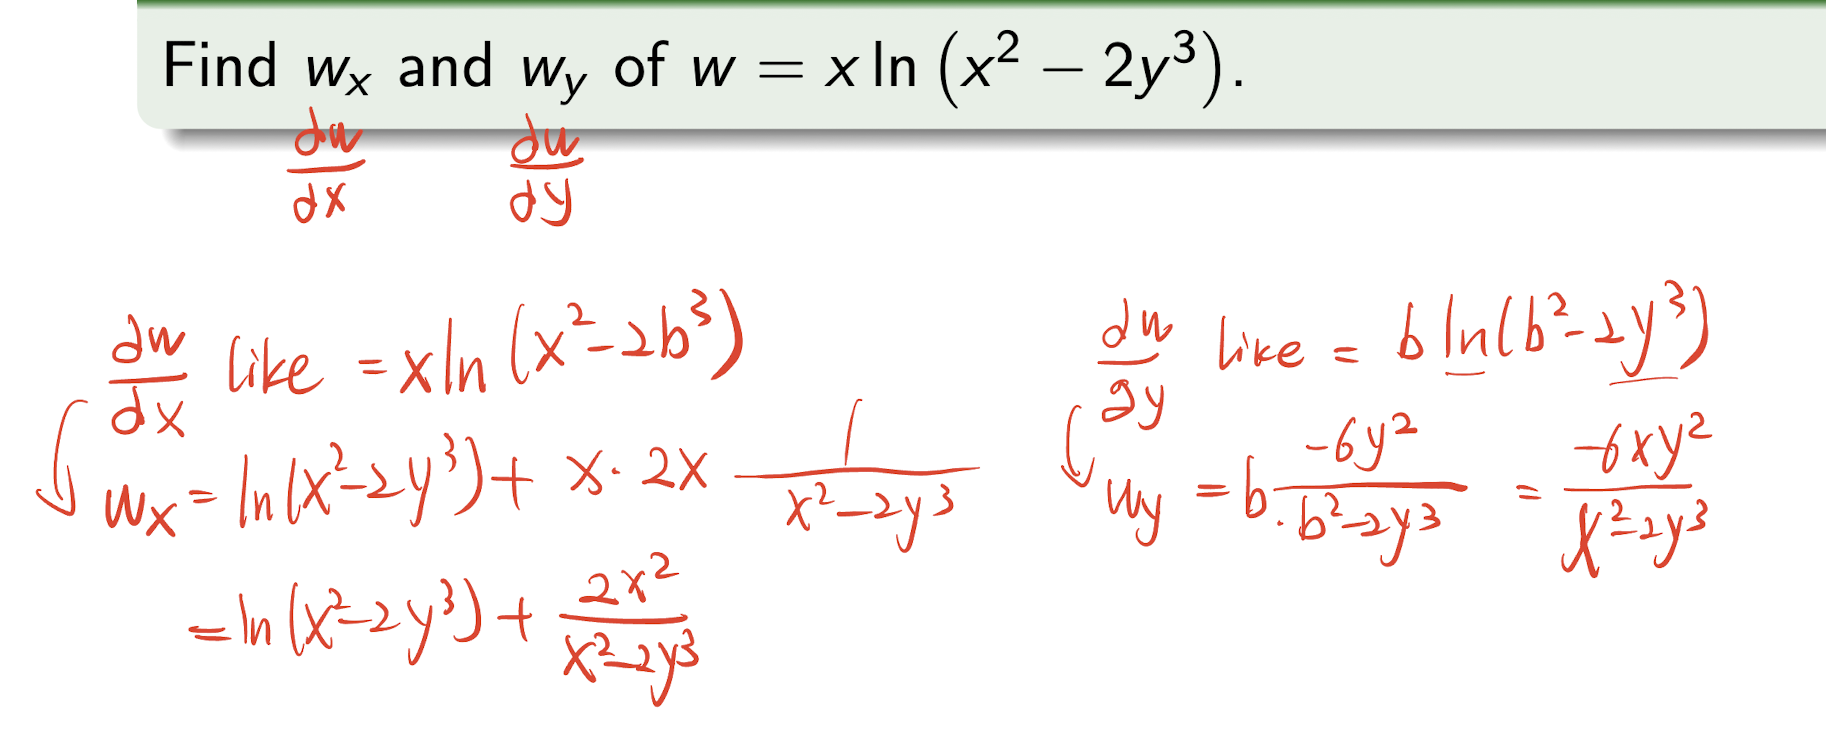 Find wₓ and w_y of w = x ln (x² − 2y³).
dw/dx dw/dy
dw/dx like = x ln (x² − 2b³)
wₓ = ln(x² − 2y³) + x · 2x 1/(x² − 2y³)
= ln (x² − 2y³) + 2x²/(x² − 2y³)
dw/∂y like = b ln(b² − 2y³)
w_y = b · −6y²/(b² − 2y³) = −6xy²/(x² − 2y³)